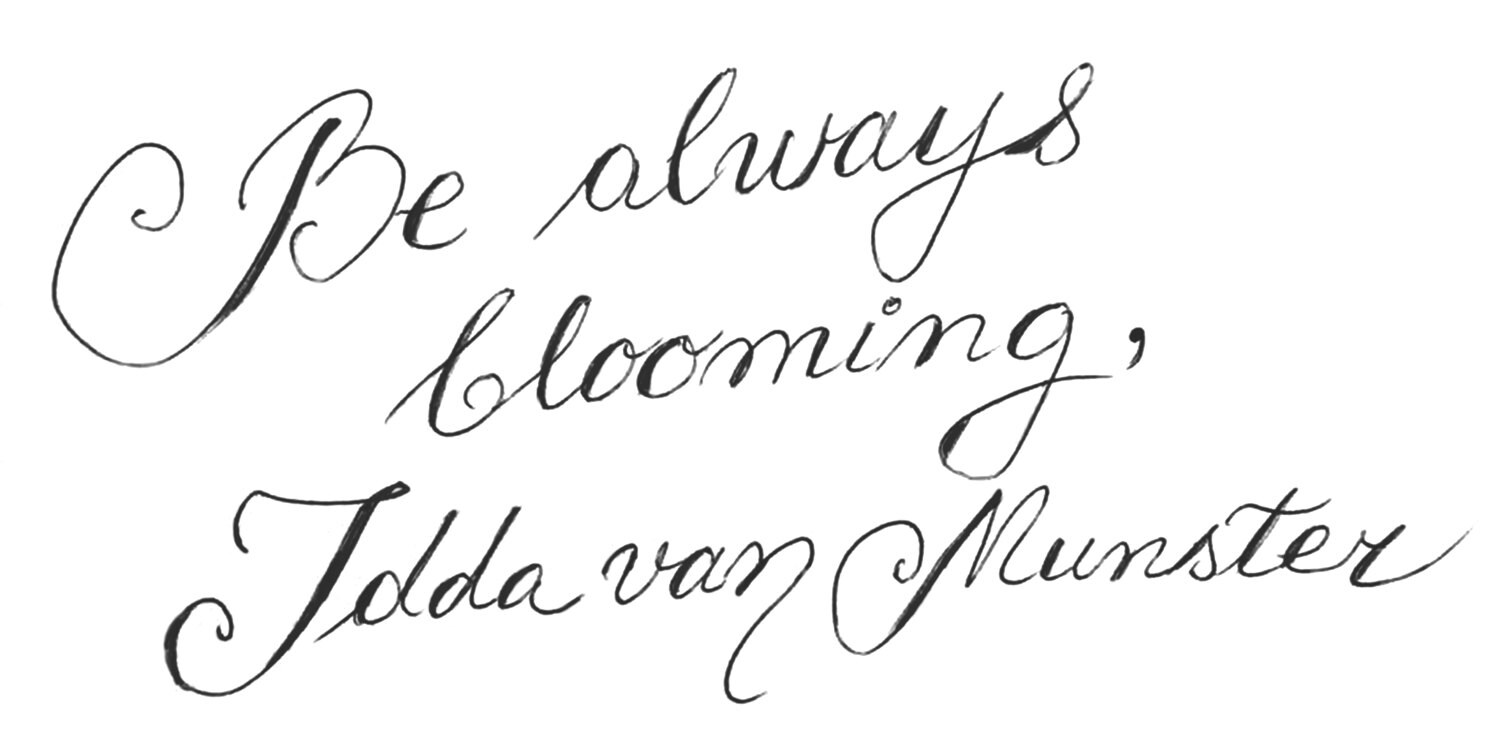 Be always
blooming,
Idda van Munster